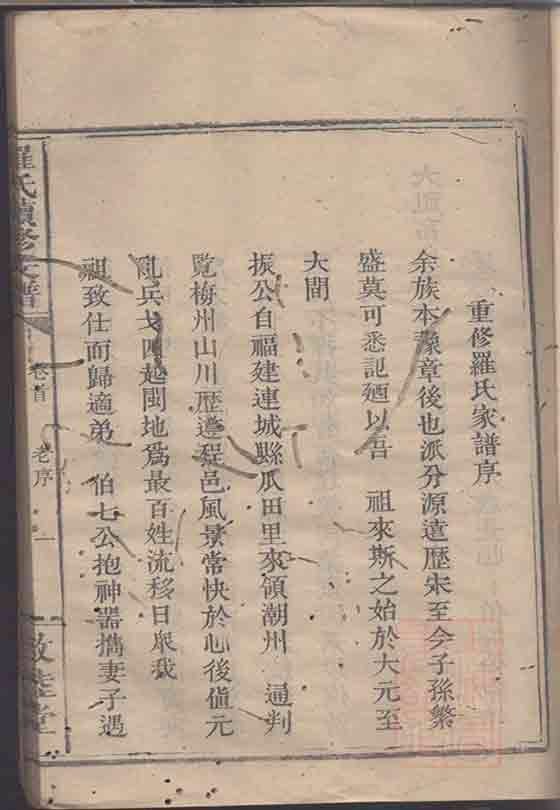 重修羅氏家譜序
余族本豫章後也派分源遠歷宋至今子孫繁
盛莫可悉記廼以吾 祖來斯之始於大元至
大間
振公自福建連城縣瓜田里來領潮州 通判
覽梅州山川歷遵程邑風景常快於心後值元
亂兵戈四起閩地爲最百姓流移日衆我
祖致仕而歸適弟 伯七公抱神器攜妻子遇
羅氏續修支譜
卷首
老序 一
敦睦堂